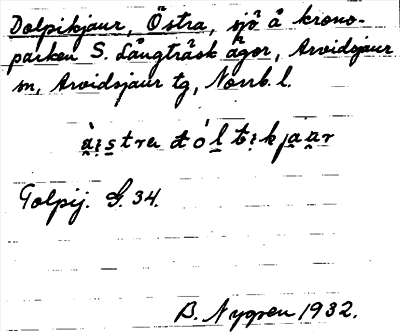 Dolpikjaur, Östra, sjö å krono-
parken S. Långträsk ägor, Arvidsjaur
sn, Arvidsjaur tg, Norrb. l.
àistra dól tikjaàr
Tolpij. G. 34.
B. Nygren 1932.